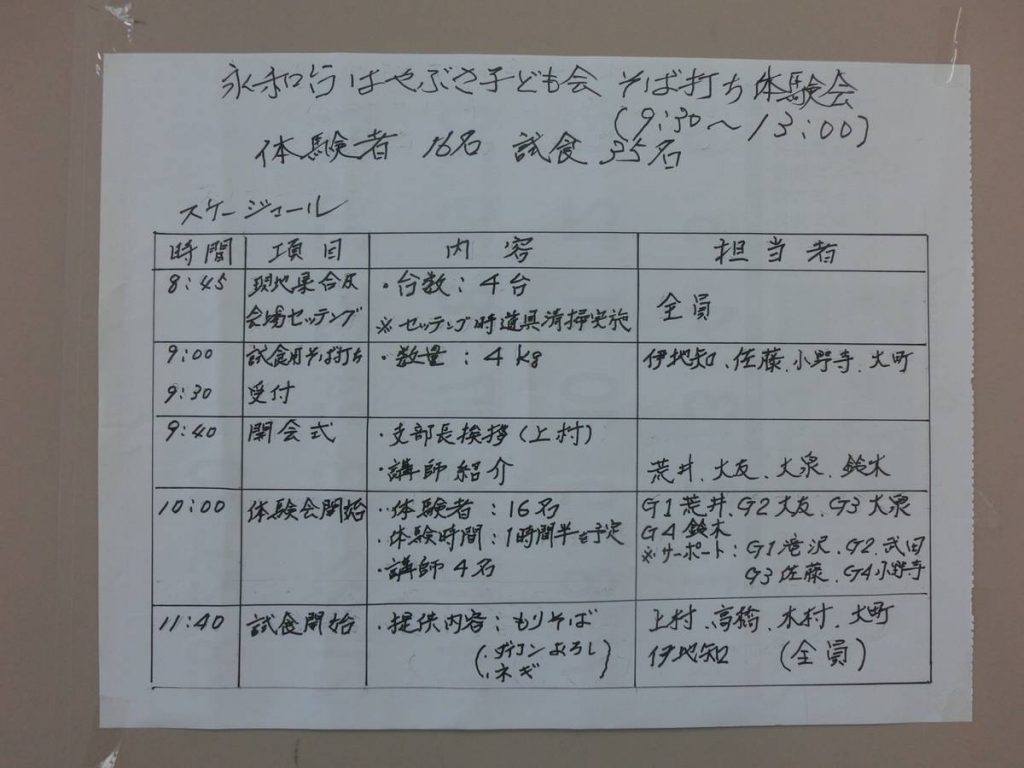 永和台はやぶさ子ども会 そば打ち体験会
(9:30〜13:00)
体験者 16名 試食 35名
スケージュール
時間 項目 内容 担当者
8:45 現地集合及 ・台数:4台
会場セッテング ※セッテング時道具清掃実施 全員
9:00 試食用そば打ち ・数量:4kg 伊地知、佐藤、小野寺、大町
9:30 受付
9:40 開会式 ・支部長挨拶(上村)
・講師紹介 荒井、大友、大泉、鈴木
10:00 体験会開始 ・体験者:16名 G1荒井、G2大友、G3大泉
・体験時間:1時間半を予定 G4鈴木
※サーポート:G1滝沢、G2.武田
・講師4名 G3佐藤、G4小野寺
11:40 試食開始 ・提供内容:もりそば 上村、高橋、木村、大町
(.ダイコンおろし
.ネギ) 伊地知 (全員)